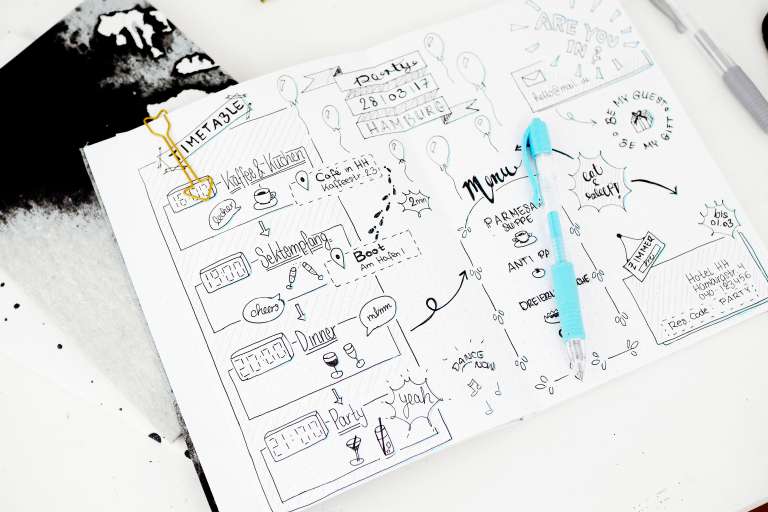 TIMETABLE
Kaffee & Kuchen
lecker
Café in HH
Kaffeestr. 23
2min
Sektempfang
19:00
Boot
Am Hafen!
cheers
mhmm
Dinner
20:00
Party
yeah
Party
28|03|17
HAMBURG
ARE YOU
IN?
BE MY GUEST
BE MY GIFT
Menu
eat
&
PARMESAN
SUPPE
ANTI PA
DANCE
NOW
bis
01.03.
ZIMMER
Hotel HH
Hamburgstr. 4
040-123456
Res. Code: PARTY